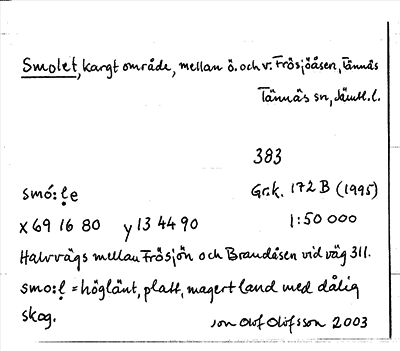 Smolet, kargt område, mellan ö. och v. Frösjöåsen, Tännäs
Tännäs sn, Jämtl.l.
383
smó:ḷe Gr.k. 172 B (1995)
x 69 16 80 y 13 44 90 1:50 000
Halvvägs mellan Frösjön och Brandåsen vid väg 311.
smo:ḷ = höglänt, platt, magert land med dålig
skog. Jon Olof Olofsson 2003